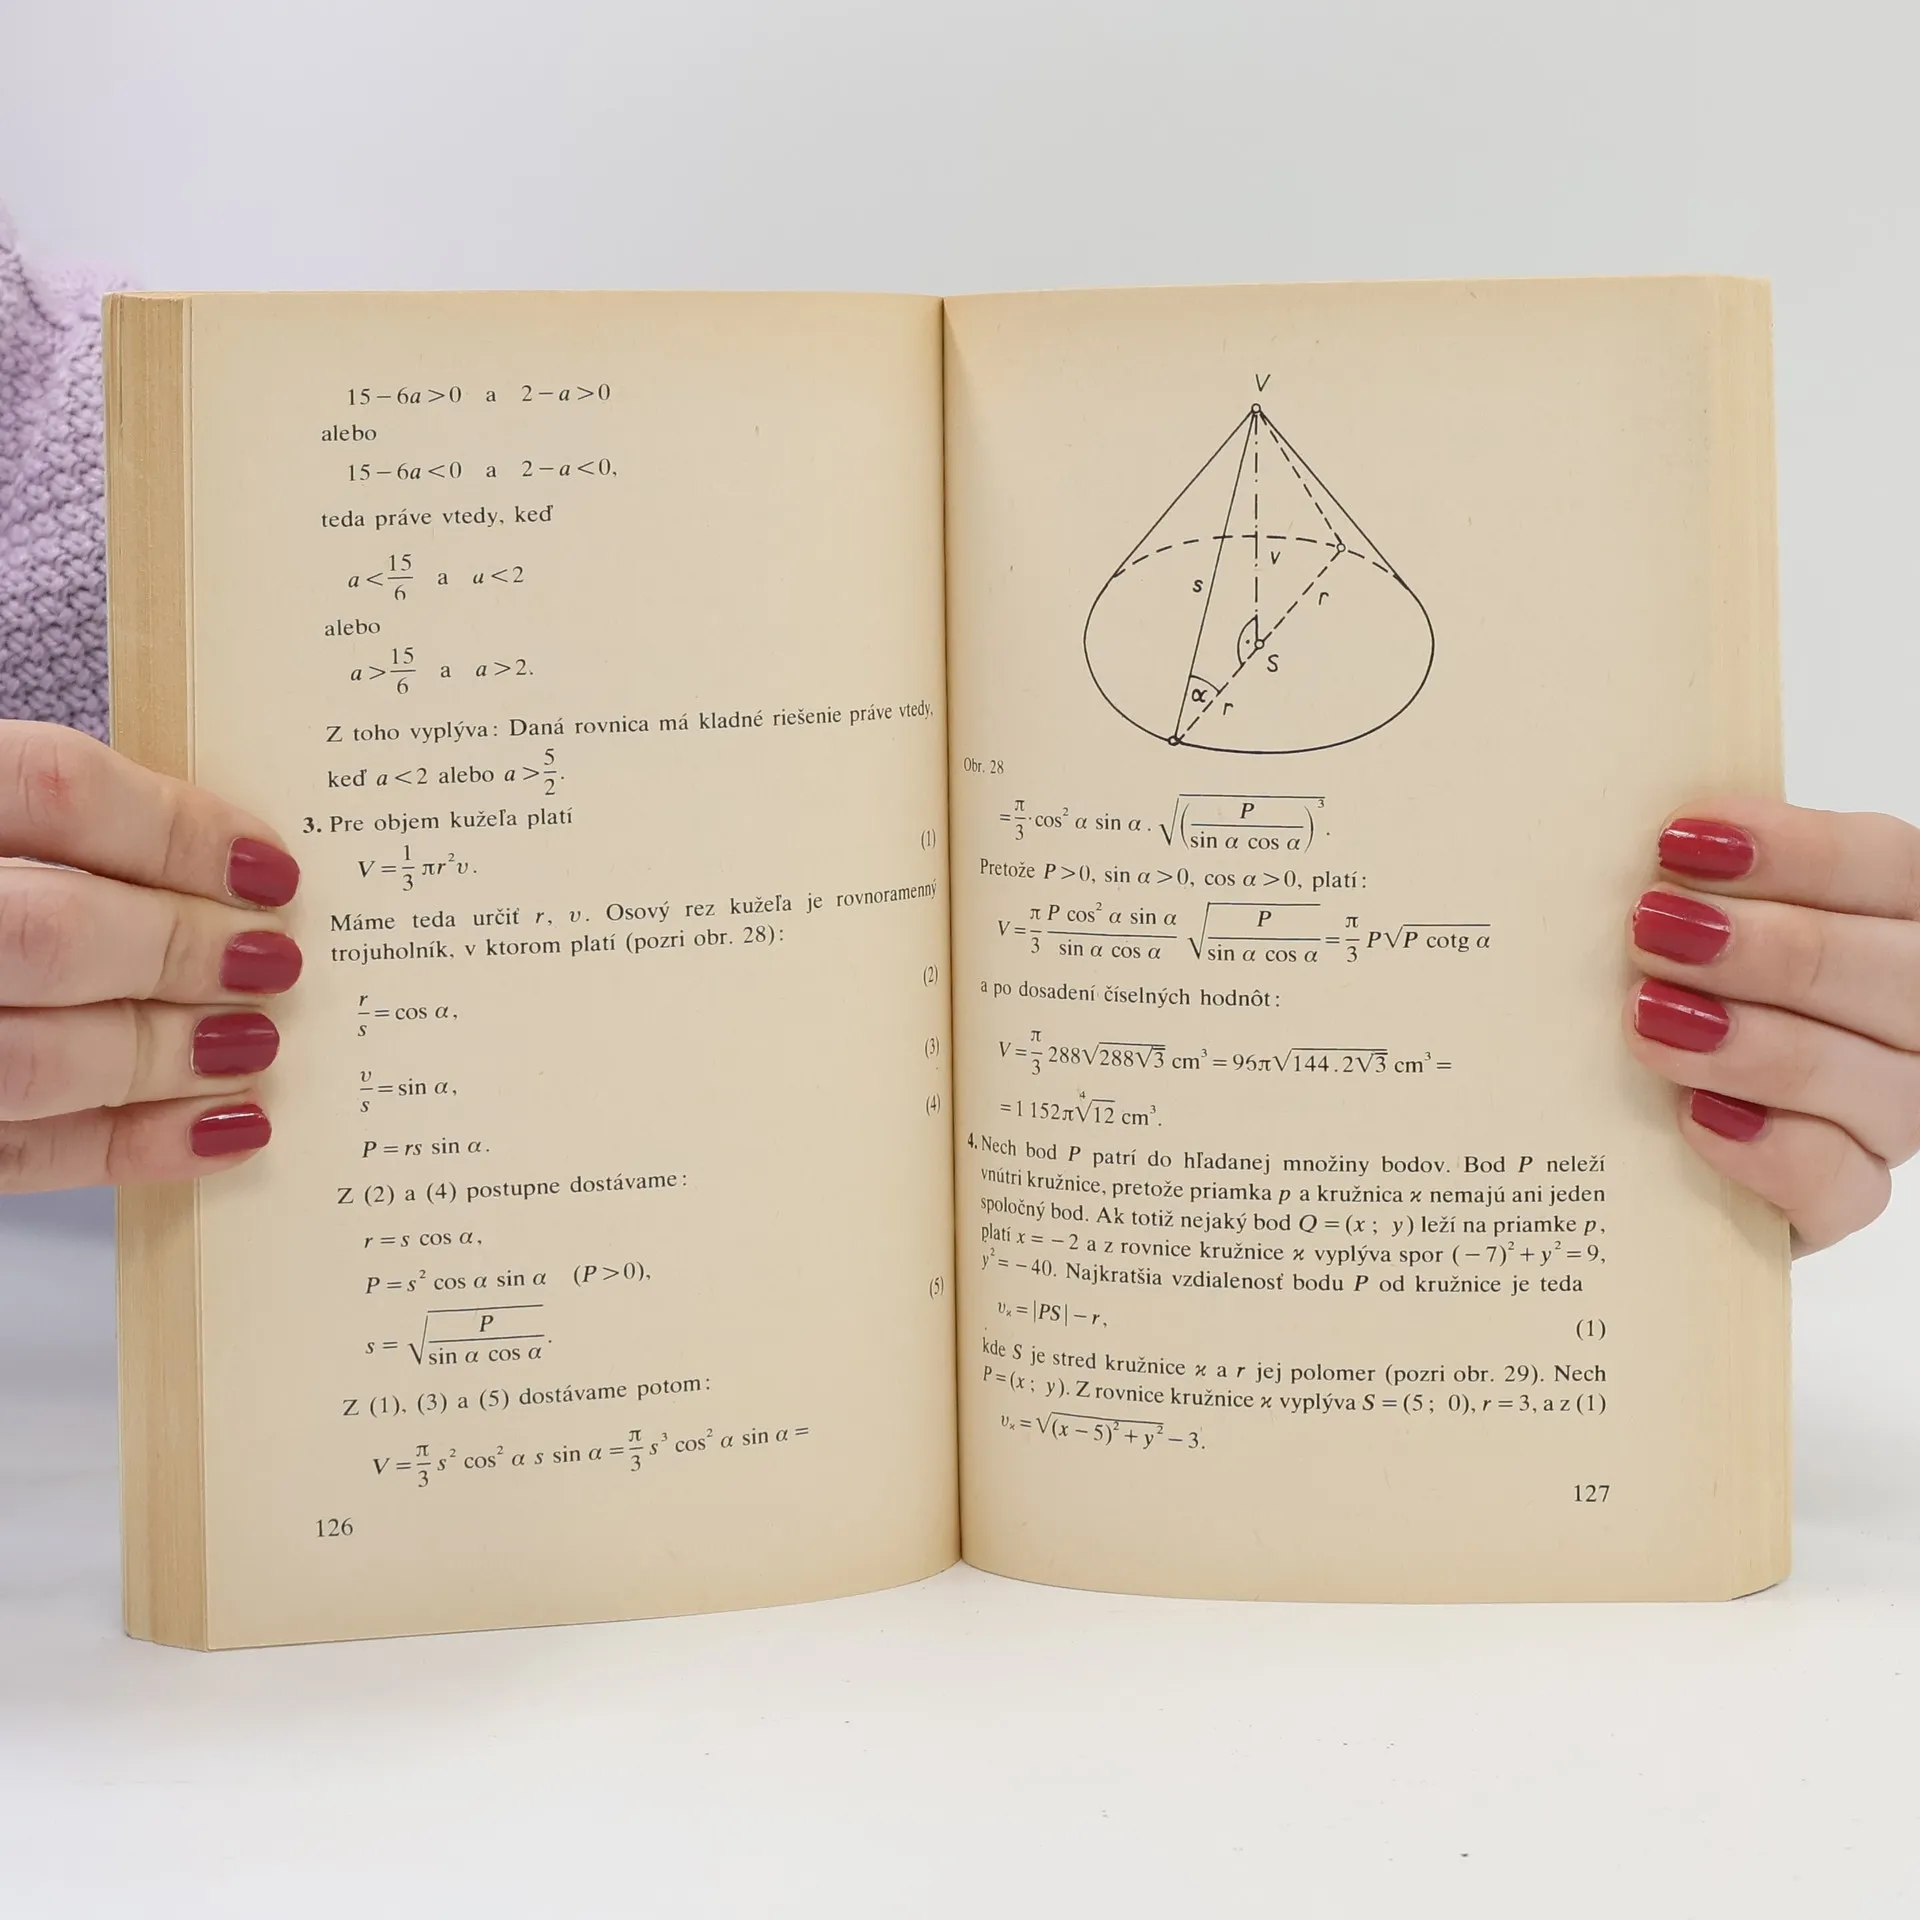 15 − 6a > 0 a 2 − a > 0
alebo
15 − 6a < 0 a 2 − a < 0,
teda práve vtedy, keď
a < 15/6 a a < 2
alebo
a > 15/6 a a > 2.
Z toho vyplýva: Daná rovnica má kladné riešenie práve vtedy,
keď a < 2 alebo a > 5/2.
3. Pre objem kužeľa platí
V = 1/3 πr²v. (1)
Máme teda určiť r, v. Osový rez kužeľa je rovnoramenný
trojuholník, v ktorom platí (pozri obr. 28):
r/s = cos α, (2)
v/s = sin α, (3)
P = rs sin α. (4)
Z (2) a (4) postupne dostávame:
r = s cos α,
P = s² cos α sin α (P > 0),
s = √(P/(sin α cos α)). (5)
Z (1), (3) a (5) dostávame potom:
V = π/3 s² cos² α s sin α = π/3 s³ cos² α sin α =
126
V
v
s
r
S
α
r
Obr. 28
= π/3 · cos² α sin α . √((P/(sin α cos α))³).
Pretože P > 0, sin α > 0, cos α > 0, platí:
V = π/3 (P cos² α sin α)/(sin α cos α) √(P/(sin α cos α)) = π/3 P√(P cotg α)
a po dosadení číselných hodnôt:
V = π/3 288√(288√3) cm³ = 96π√(144 . 2√3) cm³ =
= 1 152π⁴√12 cm³.
4. Nech bod P patrí do hľadanej množiny bodov. Bod P neleží
vnútri kružnice, pretože priamka p a kružnica ϰ nemajú ani jeden
spoločný bod. Ak totiž nejaký bod Q = (x ; y) leží na priamke p,
platí x = − 2 a z rovnice kružnice ϰ vyplýva spor (− 7)² + y² = 9,
y² = − 40. Najkratšia vzdialenosť bodu P od kružnice je teda
vϰ = |PS| − r, (1)
kde S je stred kružnice ϰ a r jej polomer (pozri obr. 29). Nech
P = (x ; y). Z rovnice kružnice ϰ vyplýva S = (5 ; 0), r = 3, a z (1)
vϰ = √((x − 5)² + y²) − 3.
127